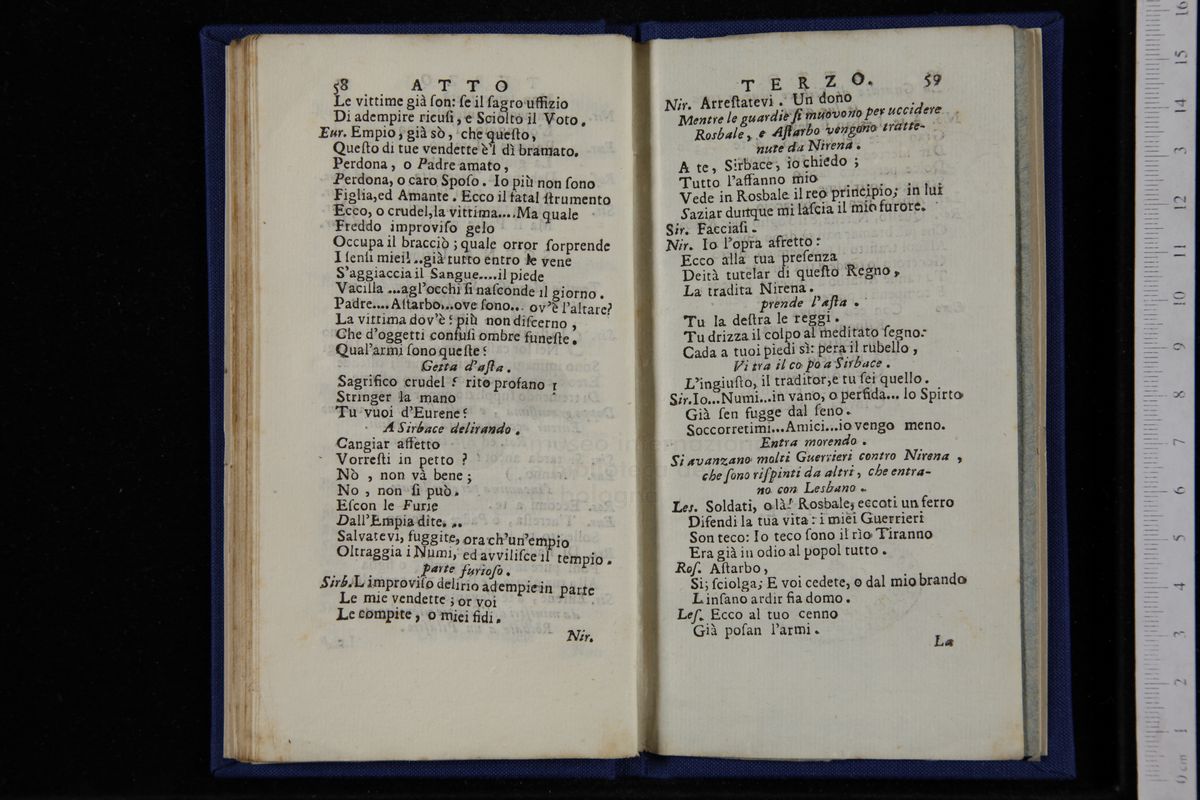 58 ATTO
Le vittime già ſon: ſe il ſagro uffizio
Di adempire ricuſi, e Sciolto il Voto.
Eur. Empio, già sò, che queſto,
Queſto di tue vendette è'l dì bramato.
Perdona, o Padre amato,
Perdona, o caro Spoſo. Io più non ſono
Figlia, ed Amante. Ecco il fatal ſtrumento
Ecco, o crudel, la vittima.... Ma quale
Freddo improviſo gelo
Occupa il bracciò; quale orror ſorprende
I ſenſi miei!..già tutto entro le vene
S'agghiaccia il Sangue....il piede
Vacilla ...agl'occhi ſi naſconde il giorno.
Padre.... Aſtarbo...ove ſono... ov'è l'altare?
La vittima dov'è? più non diſcerno,
Che d'oggetti confuſi ombre funeſte.
Qual'armi ſono queſte?
Getta d'aſta.
Sagrifico crudel? rito profano!
Stringer la mano
Tu vuoi d'Eurene?
A Sirbace delirando.
Cangiar affetto
Vorreſti in petto?
Nò, non và bene;
No, non ſi può.
Eſcon le Furie
Dall'Empia dite...
Salvatevi, fuggite, ora ch'un'empio
Oltraggia i Numi, ed avviliſce il tempio.
parte furioſo.
Sirb. L improviſo delirio adempie in parte
Le mie vendette; or voi
Le compite, o miei fidi.
Nir.
TERZO. 59
Nir. Arreſtatevi. Un dono
Mentre le guardie ſi muovono per uccidere
Rosbale, e Aſtarbo vengono tratte-
nute da Nirena.
A te, Sirbace, io chiedo;
Tutto l'affanno mio
Vede in Rosbale il reo principio; in lui
Saziar dunque mi laſcia il mio furore.
Sir. Facciaſi.
Nir. Io l'opra afretto:
Ecco alla tua preſenza
Deità tutelar di queſto Regno,
La tradita Nirena.
prende l'aſta.
Tu la deſtra le reggi.
Tu drizza il colpo al meditato ſegno:
Cada a tuoi piedi sì: pera il rubello,
Vi tra il co po a Sirbace.
L'ingiuſto, il traditor, e tu ſei quello.
Sir. Io...Numi...in vano, o perfida... lo Spirto
Già ſen fugge dal ſeno.
Soccorretimi...Amici...io vengo meno.
Entra morendo.
Si avanzano molti Guerrieri contro Nirena,
che ſono riſpinti da altri, che entra-
no con Lesbano.
Les. Soldati, olà! Rosbale, eccoti un ferro
Difendi la tua vita: i miei Guerrieri
Son teco: Io teco ſono il rio Tiranno
Era già in odio al popol tutto.
Roſ. Aſtarbo,
Si; ſciolga; E voi cedete, o dal mio brando
L inſano ardir fia domo.
Leſ. Ecco al tuo cenno
Già poſan l'armi.
La